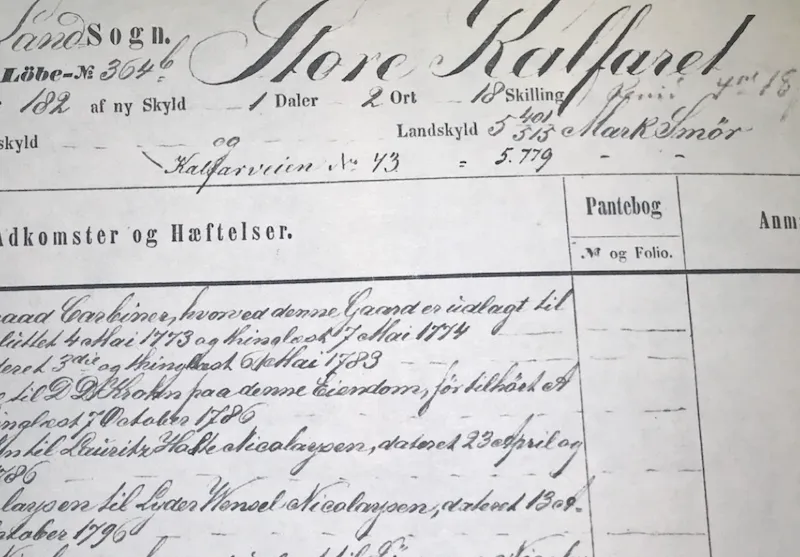 Land Sogn. Store Kalfaret
Löbe-№ 364b
182 af ny Skyld 1 Daler 2 Ort 18 Skilling
skyld og Landskyld 5 401/515 Mark Smör
Kalfarveien No 43 = 5.779 - -
Adkomster og Hæftelser. Pantebog Anm
№ og Folio.
Carbiner, hvorved denne Gaard er udlagt til
sluttet 4 Mai 1773 og thinglæst 7 Mai 1774
dateret 3die og thinglæst 6 Mai 1783
til D D Krohn paa denne Eiendom, før tilhört A
inglæst 7 October 1786
til Lauritz Holte Nicolaysen, dateret 23 April og
1786
laysen til Lyder Wensel Nicolaysen, dateret 13
ktober 1796